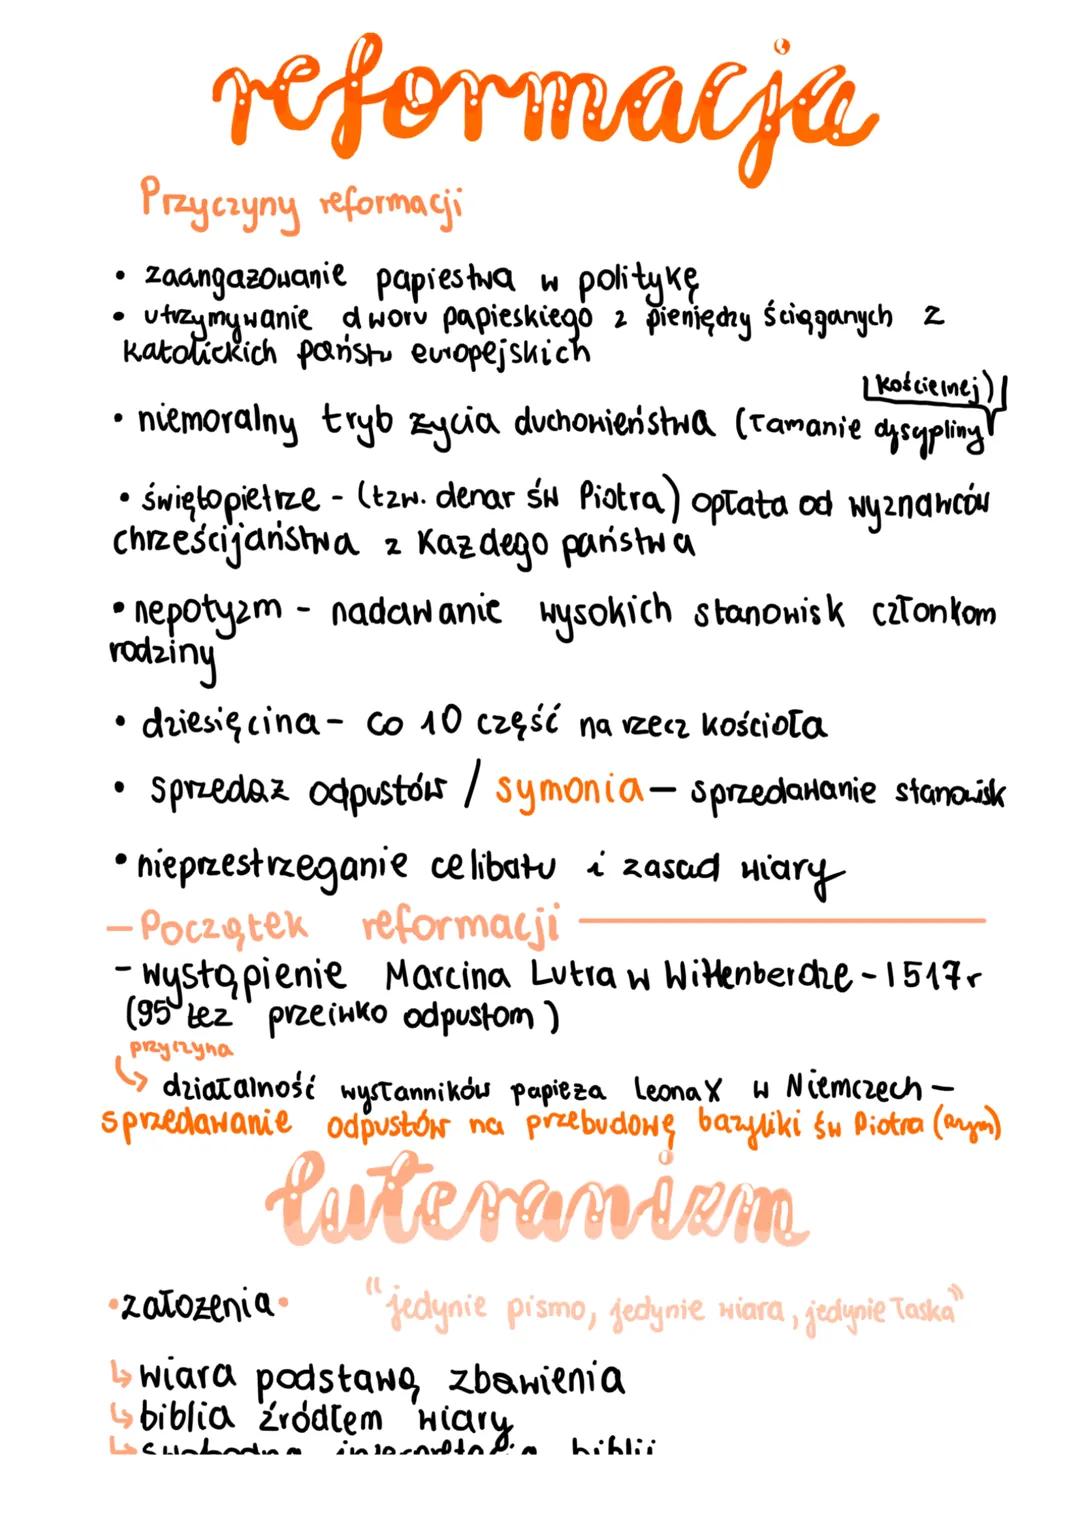 reformacja
Przyczyny reformacji
• zaangażowanie papiestwa w politykę
• utrzymywanie dworu papieskiego z pieniędzy ściąganych z
katolickich państw europejskich
kościelnej)
• niemoralny tryb życia duchowieństwa (łamanie dyscypliny
• świętopietrze - (tzw. denar św Piotra) opłata od wyznawców
chrześcijaństwa z każdego państwa
• nepotyzm - nadawanie wysokich stanowisk członkom
rodziny
• dziesięcina - co 10 część na rzecz kościoła
• sprzedaż odpustów / symonia - sprzedawanie stanowisk
• nieprzestrzeganie celibatu i zasad wiary
- Początek reformacji
- wystąpienie Marcina Lutra w Wittenberdze - 1517r
(95 tez przeiwko odpustom)
przyczyna
↳ działalność wysłanników papieża Leona X w Niemczech -
sprzedawanie odpustów na przebudowę bazyliki św Piotra (Rzym)
luteranizm
• założenia • "jedynie pismo, jedynie wiara, jedynie łaska"
↳ wiara podstawą zbawienia
↳ biblia źródłem wiary
↳ swobodna interpretacja biblii